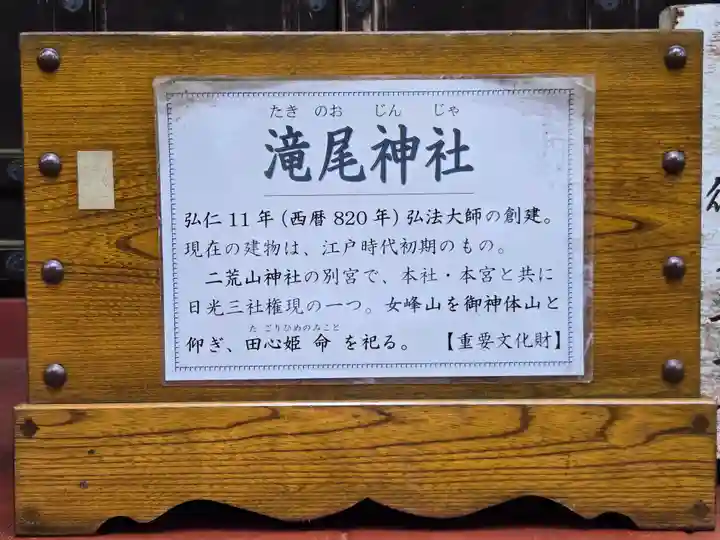 たき のお じん じゃ
滝尾神社
弘仁 11 年 (西暦 820 年) 弘法大師の創建。
現在の建物は、江戸時代初期のもの。
二荒山神社の別宮で、本社・本宮と共に
日光三社権現の一つ。女峰山を御神体山と
た ごりひめのみこと
仰ぎ、田心姫 命 を祀る。 【重要文化財】